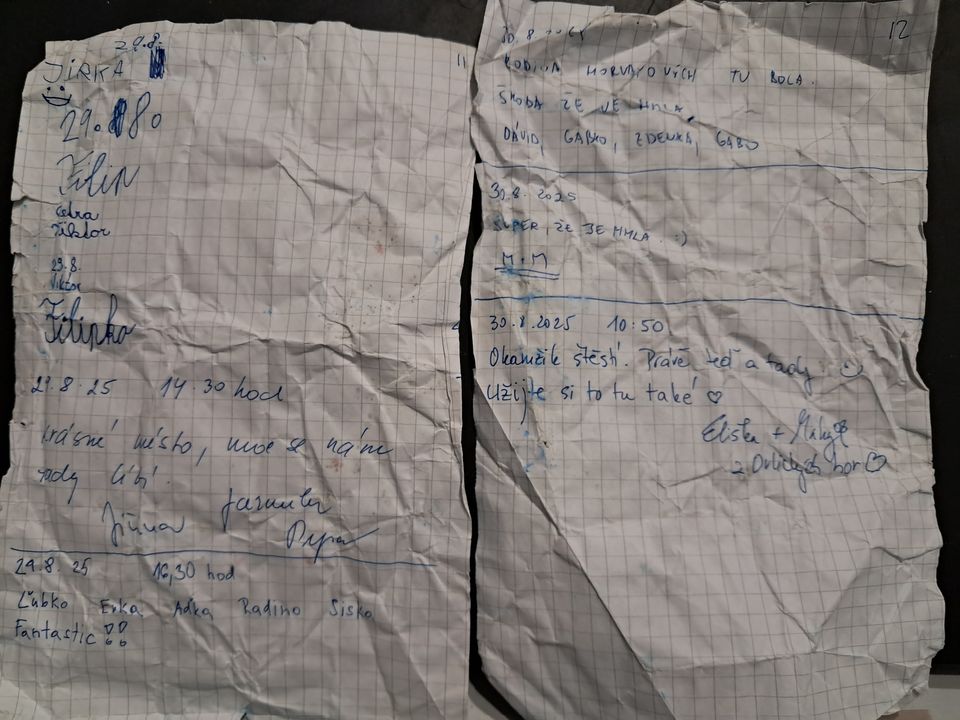 29.8.
11
JIRKA
29. 8.
Filip
Viktor
29.8.
Viktor
Filipko
29.8.25 14.30 hod
krásné místo, moc se nám
tady líbí.
Jiřina Jarmila
29.8.25 16,30 hod
Ľubko Evka Aďka Radino Sisko
Fantastic!!
12
RODINA HORVÁTOVÝCH TU BOLA.
ŠKODA ŽE JE HMLA,
DÁVID, GABKO, ZDENKA, GABO
30.8.2025
SUPER, ŽE JE HMLA. :)
M+M
30.8.2025 10:50
Okamžik štěstí. Právě teď a tady.
Užijte si to tu také ♡
Eliška +
z Orlických hor ♡